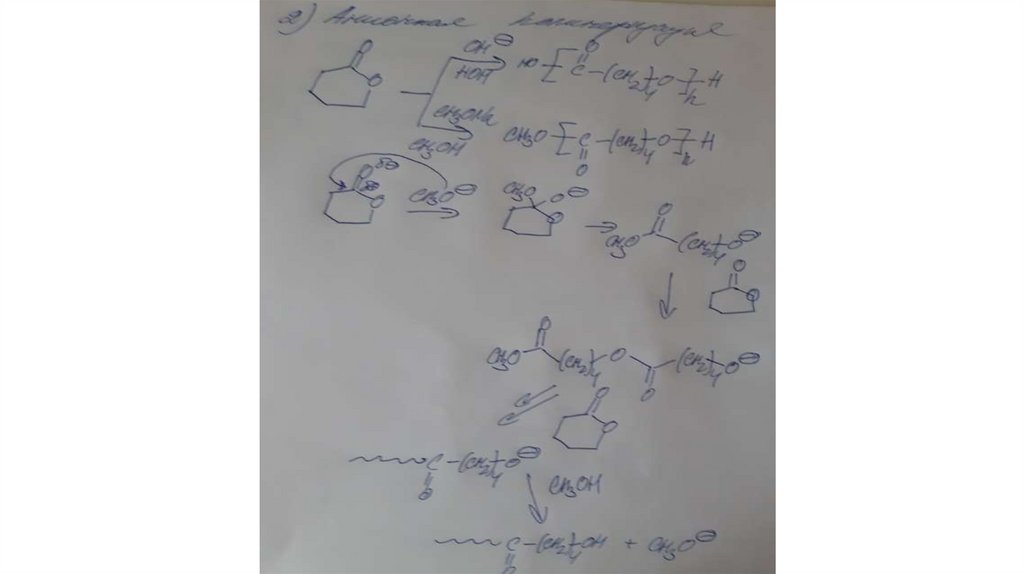 2) Анионная полимеризация
O OH⊖ O
HOH HO-[-C-(CH2)4-O-]n-H
O
CH3ONa
CH3OH CH3O-[-C-(CH2)4-O-]n-H
O
Oδ⊖ δ⊕ O CH3O⊖ CH3O O⊖ O
O
CH3O (CH2)4 O⊖
O
O
O
CH3O (CH2)4 O (CH2)4 O⊖
O
O
O
C-(CH2)4-O⊖
O
CH3OH
C-(CH2)4-OH + CH3O⊖
O